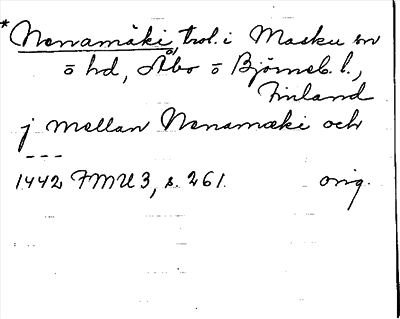 *Nenamäki, trol. i Masku sn
o hd, Åbo o Björneb. l.,
Finland
j mellan Nenamæki och
---
1442 FMU 3, s. 261. orig.